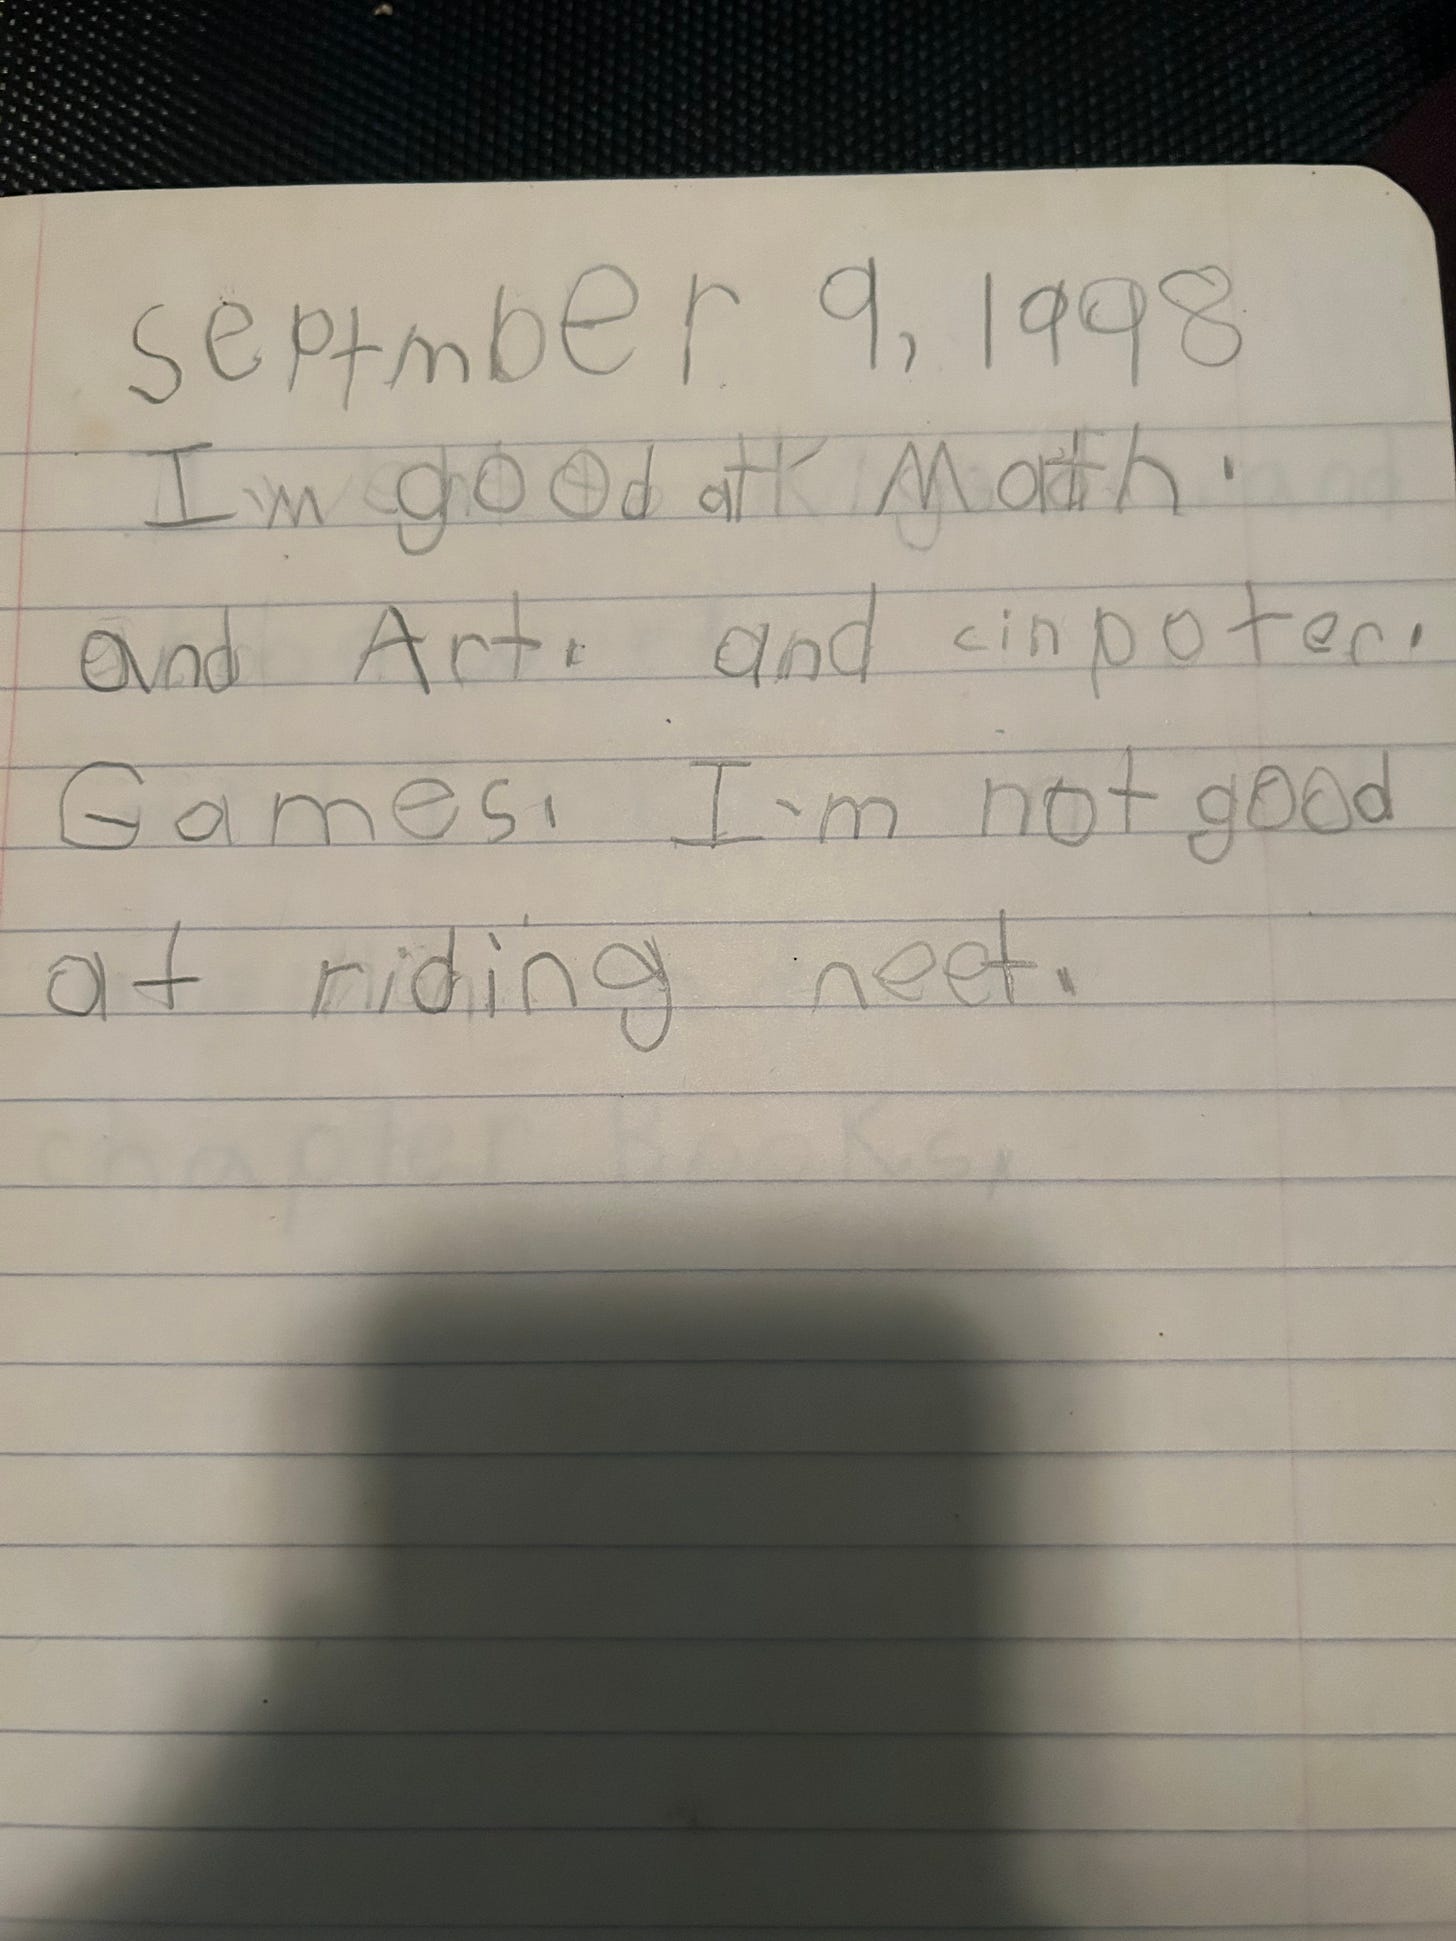 septmber 9, 1998
I'm good at Math.
and Art. and cinpoter.
Games. I'm not good
at riding neet.
chapter books,